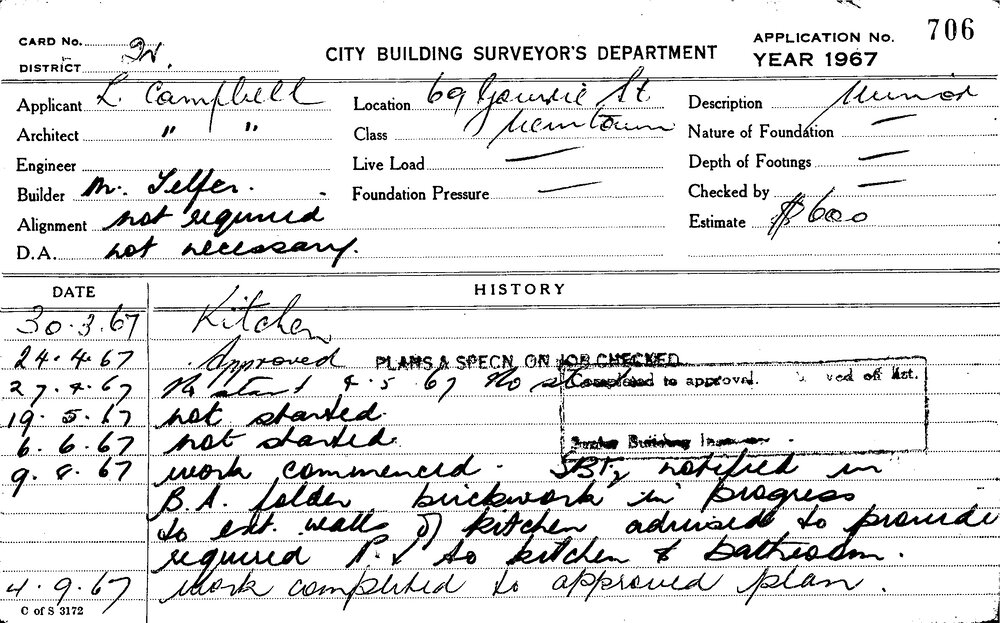 CARD No. DISTRICT 2W.
CITY BUILDING SURVEYOR'S DEPARTMENT
APPLICATION No. 706
YEAR 1967
Applicant L. Campbell
Location 69 Gowrie St.
Description Minor
Architect " "
Class Newtown
Nature of Foundation —
Engineer
Live Load —
Depth of Footings —
Builder M. Telfer.
Foundation Pressure —
Checked by —
Alignment not required
Estimate $600
D.A. not necessary.
DATE HISTORY
30.3.67 Kitchen
24.4.67 Approved PLANS & SPECN. ON JOB CHECKED
27.4.67 No start 4.5.67 No
Completed to approval.
19.5.67 not started.
6.6.67 not started.
Building
9.8.67 work commenced. notified in
B.A. folder brickwork in progress
to ext. walls of kitchen advised to provide
required to kitchen & bathroom.
4.9.67 work completed to approved plan.
C of S 3172